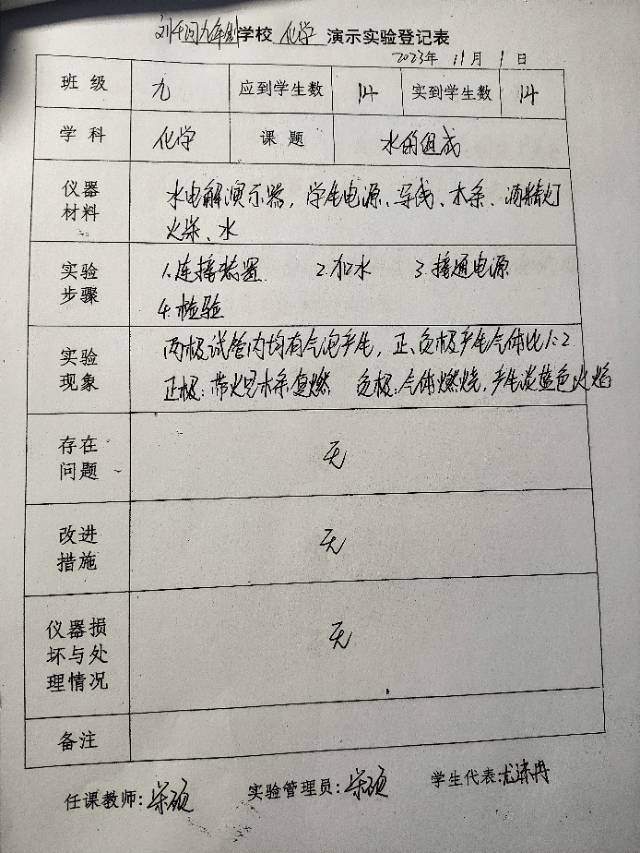 刘千河九年制学校 化学 演示实验登记表
2023年 11月 1日
班级 九 应到学生数 14 实到学生数 14
学科 化学 课题 水的组成
仪器材料 水电解演示器，学生电源、导线、木条、酒精灯
火柴、水
实验步骤 1.连接装置 2.加水 3.接通电源
4.检验
实验现象 两极试管内均有气泡产生，正、负极产生气体比1:2
正极：带火星木条复燃 负极：气体燃烧，产生淡蓝色火焰
存在问题 无
改进措施 无
仪器损坏与处理情况 无
备注
任课教师： 实验管理员： 学生代表：